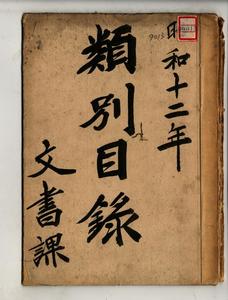 昭和十二年
類別目錄
文書課